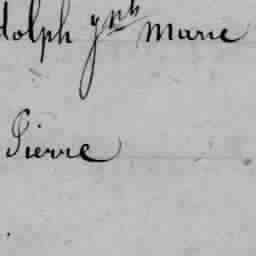 dolph Jph Marie
Pierre